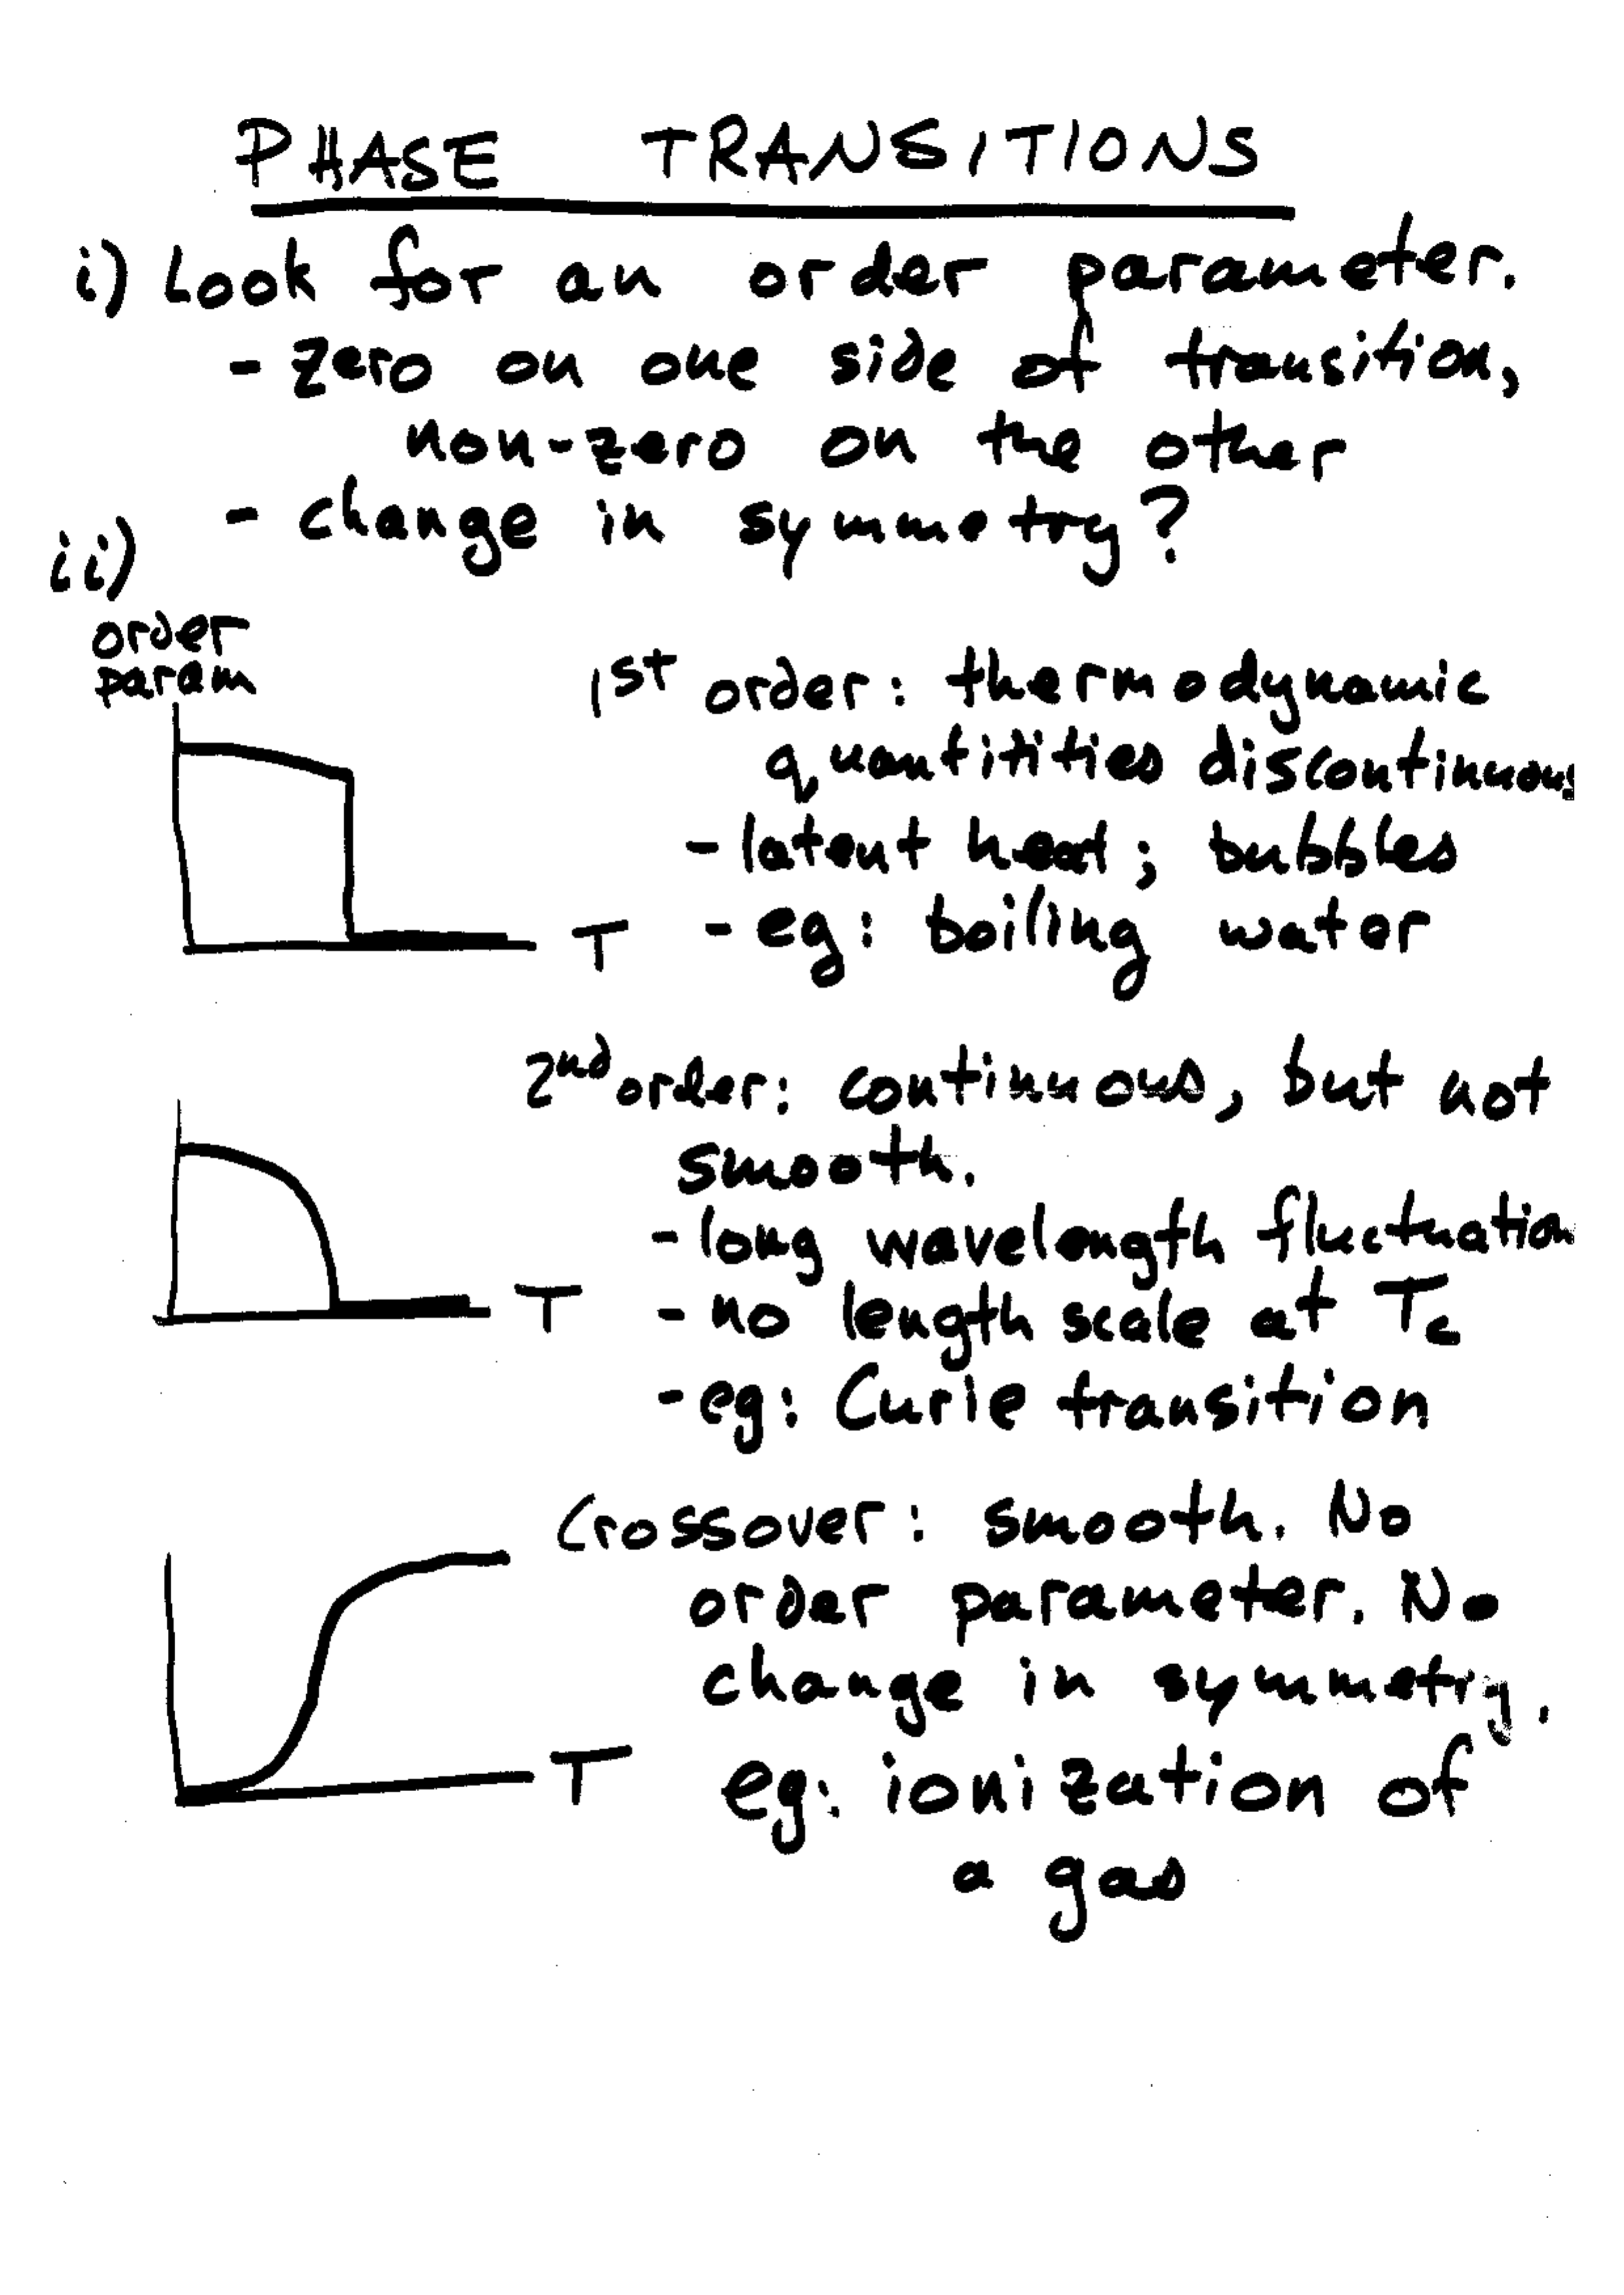 PHASE TRANSITIONS
i) Look for an order parameter.
- zero on one side of transition,
non-zero on the other
- change in symmetry?
ii)
order
param
1st order: thermodynamic
quantitities discontinuous
- latent heat; bubbles
T - eg: boiling water
2nd order: continuous, but not
smooth.
- long wavelength fluctuation
T - no length scale at Tc
- eg: Curie transition
Crossover: smooth. No
order parameter. No
change in symmetry.
T eg: ionization of
a gas